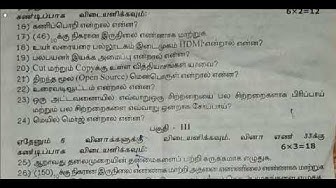 கண்டிப்பாக விடையளிக்கவும்: 6×2=12
16) கணிப்பொறி என்றால் என்ன?
17) (46) க்கு நிகரான இருநிலை எண்ணாக மாற்றுக
18) உயர் வரையறை பல்லூடகம் இடைமுகம் HDMI என்றால் என்ன?
19) பலபயனர் இயக்க அமைப்பு என்றால் என்ன?
20) Cut மற்றும் Copyக்கு உள்ள வித்தியாசங்கள் யாவை?
21) திறந்த மூல (Open Source) மென்பொருள் என்றால் என்ன?
22) உரைவடிவூட்டம் என்றால் என்ன?
23) ஒரு அட்டவணையில் எவ்வாறு ஒரு சிற்றறையை பல சிற்றறைகளாக பிரிப்பாய்
மற்றும் பல சிற்றறைகளை எவ்வாறு ஒன்றாக சேர்ப்பாய்?
24) மெயில் மெர்ஜ் என்றால் என்ன?
பகுதி - III
ஏதேனும் 6 வினாக்களுக்கு விடையளிக்கவும். வினா எண் 33க்கு
கண்டிப்பாக விடையளிக்கவும். 6×3=18
25) ஆறாவது தலைமுறையின் தன்மைகளைப் பற்றி சுருக்கமாக எழுதுக.
26) (150) க்கு நிகரான இருநிலை எண்ணாக மாற்றி அதனை எண்ம எண்ணாக மாற்றுக